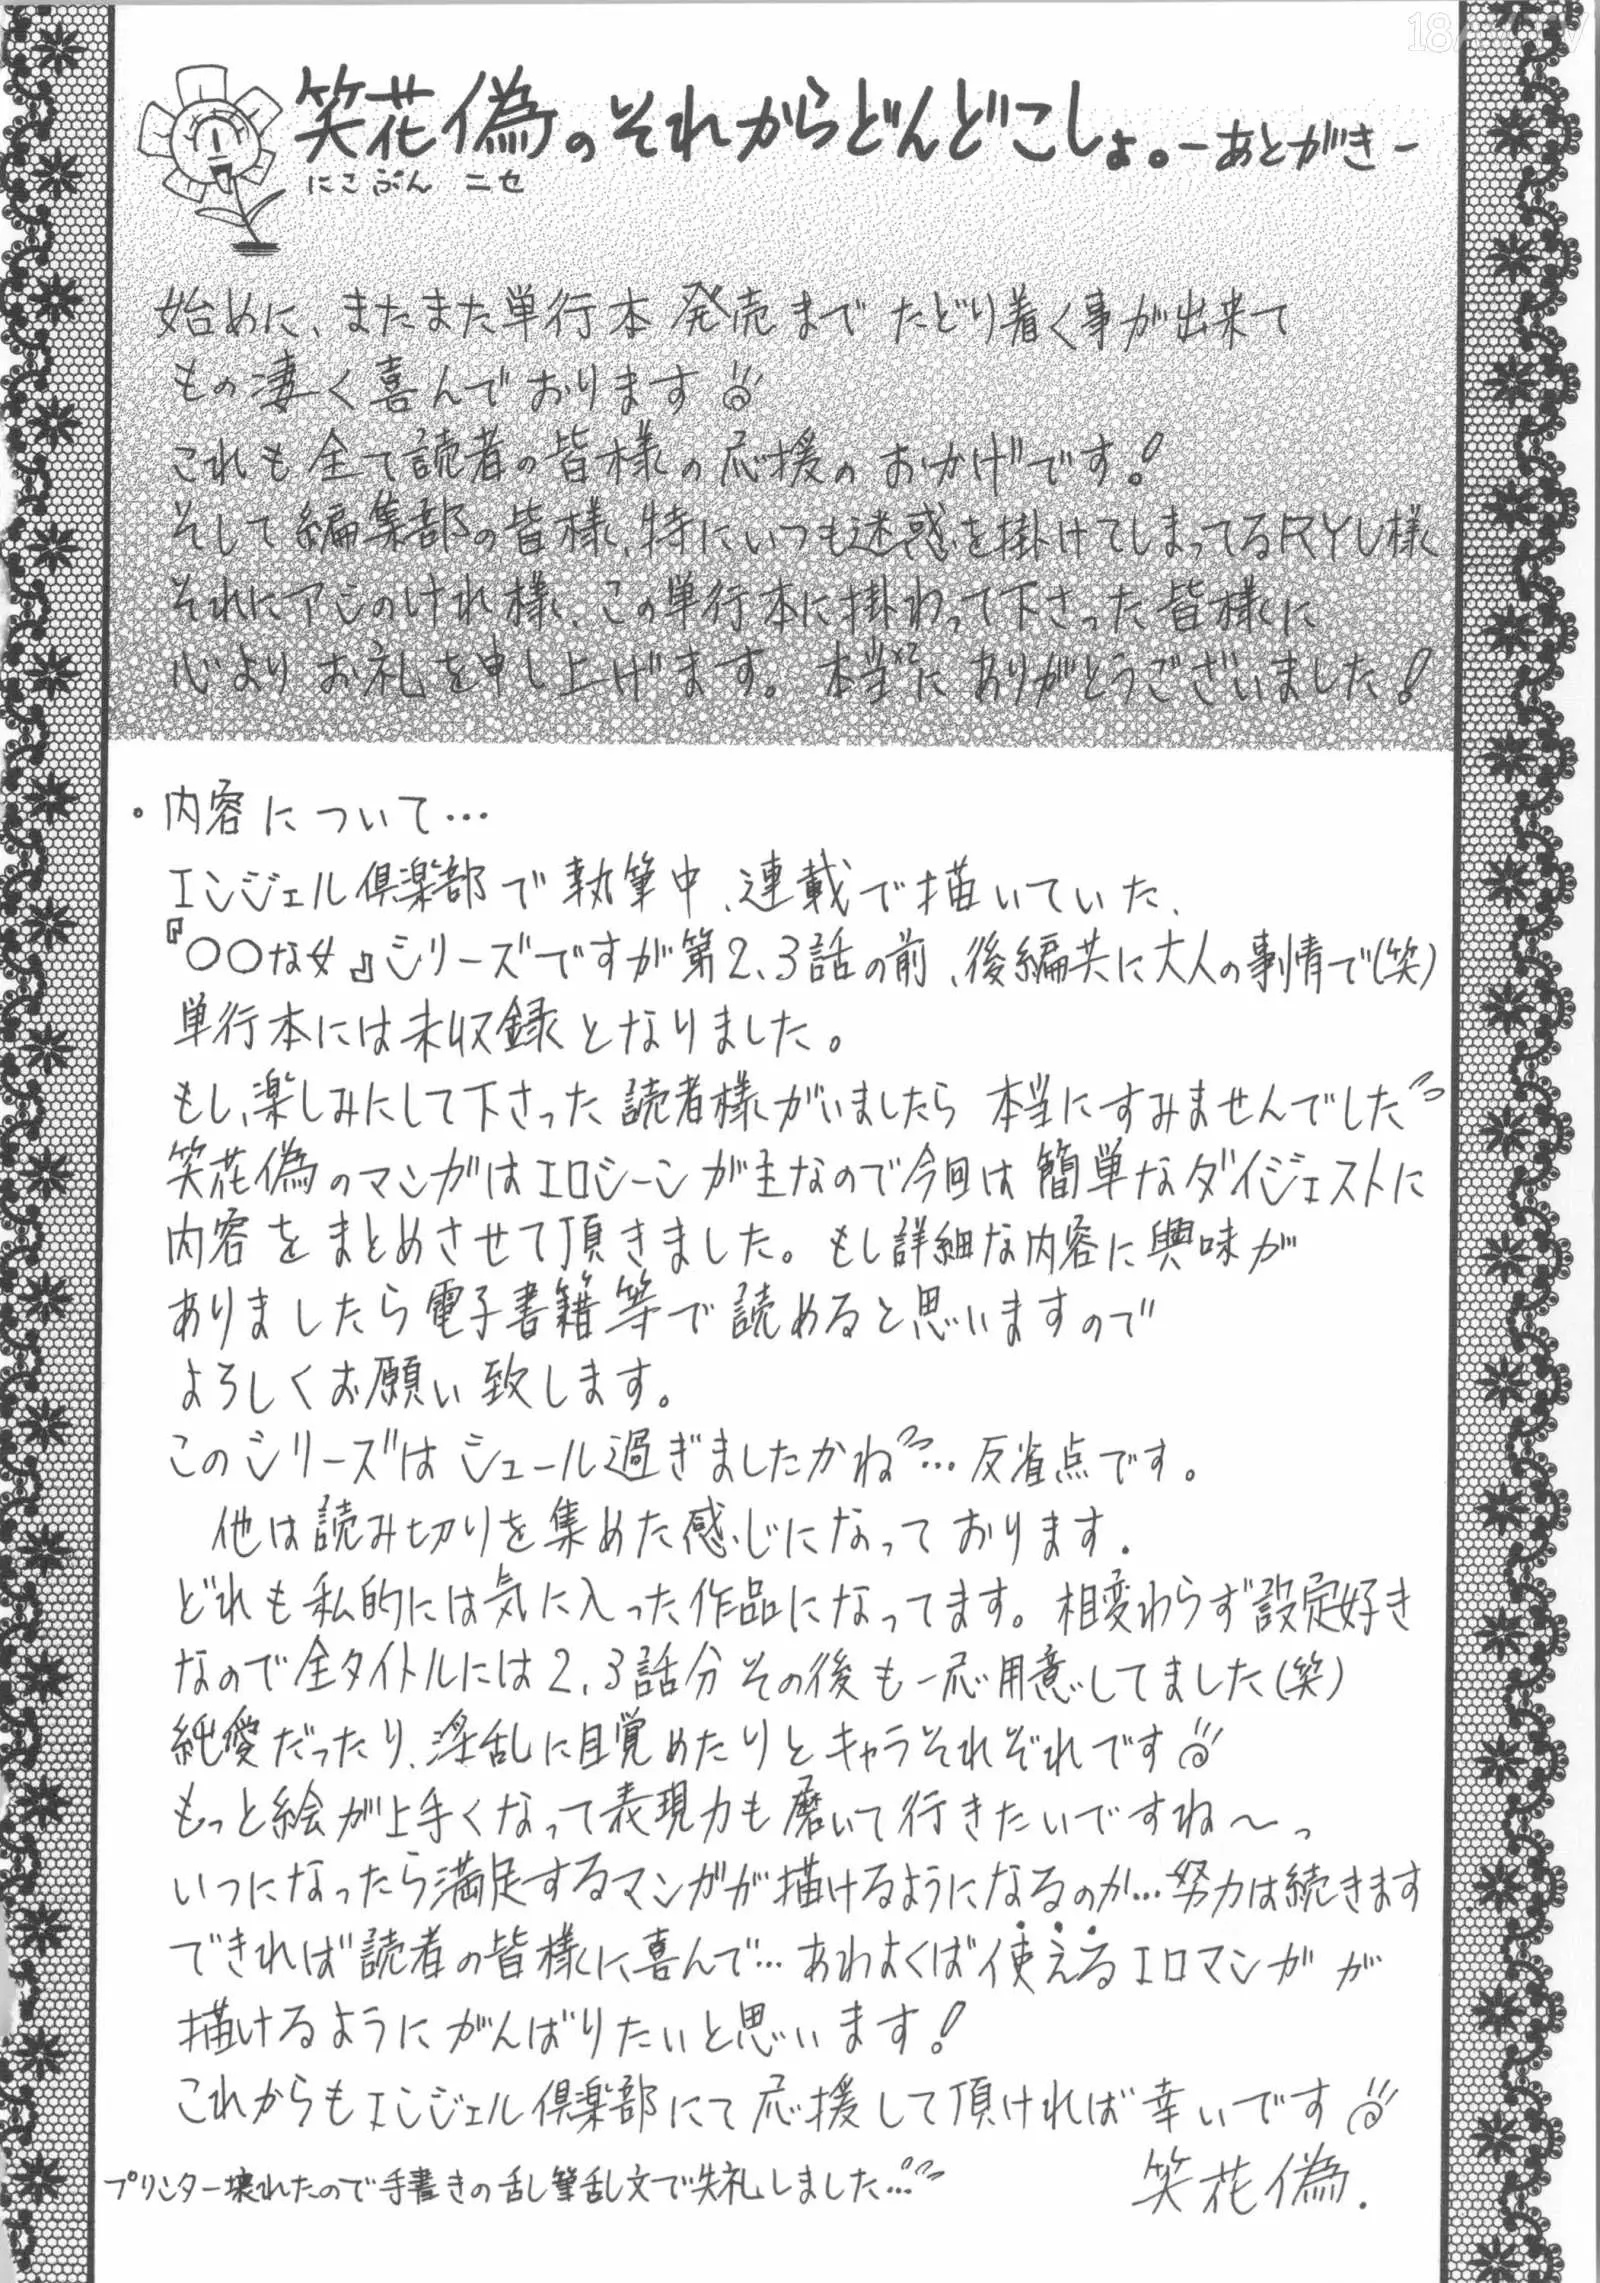 笑花偽のそれからどんどこしょ。-あとがき-
にこぷん ニセ
始めに、またまた単行本 発売まで たどり着く事が出来て
もの凄く喜んでおります
これも全て読者の皆様の応援のおかげです!
そして編集部の皆様、特にいつも迷惑を掛けてしまってるRYU様
それにアシのけれ様、この単行本に掛わって下さった皆様に
心よりお礼を申し上げます。本当×2にありがとうございました!
・内容について…
エンジェル倶楽部で執筆中、連載で描いていた、
『〇〇な女』シリーズですが第2、3話の前、後編共に大人の事情で(笑)
単行本には未収録となりました。
もし、楽しみにして下さった読者様がいましたら 本当にすみませんでした
笑花偽のマンガはエロシーンが主なので今回は簡単なダイジェストに
内容をまとめさせて頂きました。もし詳細な内容に興味が
ありましたら電子書籍等で読めると思いますので
よろしくお願い致します。
このシリーズはシュール過ぎましたかね…反省点です。
他は読み切りを集めた感じになっております.
どれも私的には気に入った作品になってます。相変わらず設定好き
なので全タイトルには2、3話分その後も一応用意してました(笑)
純愛だったり、淫乱に目覚めたりとキャラそれぞれです
もっと絵が上手くなって表現力も磨いて行きたいですね〜っ
いつになったら満足するマンガが描けるようになるのか…努力は続きます
できれば読者の皆様に喜んで…あわよくば使えるエロマンガが
描けるようにがんばりたいと思います!
これからもエンジェル倶楽部にて応援して頂ければ幸いです
プリンター壊れたので手書きの乱筆乱文で失礼しました…
笑花偽.